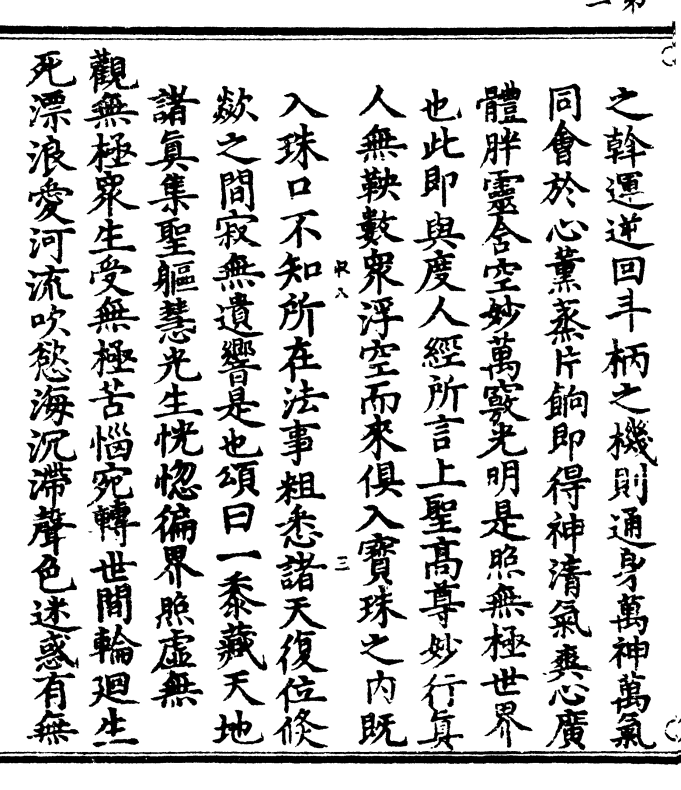 之斡運逆回斗柄之機則通身萬神萬氣
同會於心薰蒸片餉即得神清氣爽心廣
體胖靈舍空妙萬竅光明是照無極世界
也此即與度人經所言上聖高尊妙行眞
人無鞅數衆浮空而來俱入寶珠之内既
入珠口不知所在法事粗悉諸天復位倐
欻之間寂無遺響是也頌曰一黍藏天地
諸眞集聖軀慧光生恍惚徧界照虛無
觀無極衆生受無極苦惱宛轉世間輪廻生
死漂浪愛河流吹慾海沉滯聲色迷惑有無